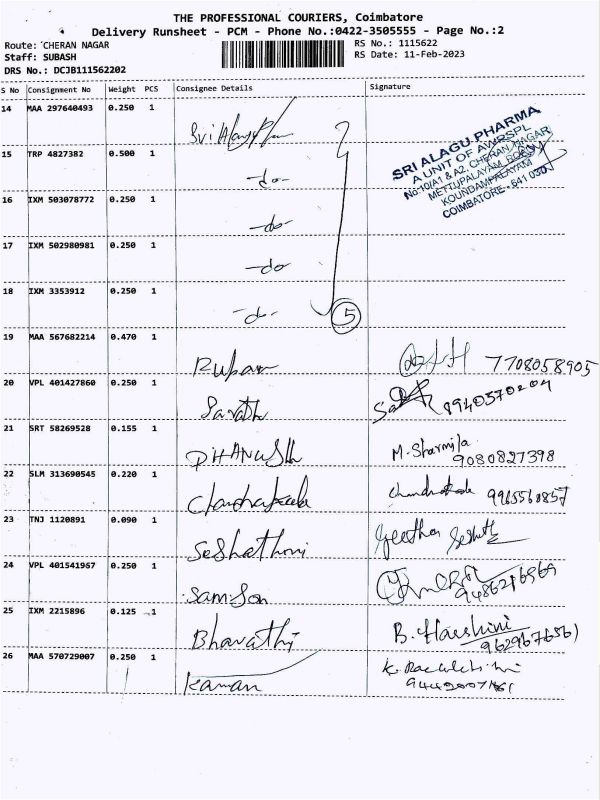 THE PROFESSIONAL COURIERS, Coimbatore
Delivery Runsheet - PCM - Phone No.:0422-3505555 - Page No.:2
Route: CHERAN NAGAR
Staff: SUBASH
DRS No.: DCJB111562202
RS No.: 1115622
RS Date: 11-Feb-2023
S No Consignment No Weight PCS Consignee Details Signature
14 MAA 297640493 0.250 1 Sri Alagu
SRI ALAGU PHARMA
A UNIT OF AWRSPL
No:10/A1 & A2, CHERAN NAGAR
METTUPALAYAM ROAD
KOUNDAMPALAYAM
COIMBATORE - 641 030
15 TRP 4827382 0.500 1 -do-
16 IXM 503078772 0.250 1 -do-
17 IXM 502980981 0.250 1 -do
18 IXM 3353912 0.250 1 -do- 5
19 MAA 567682214 0.470 1 Ruban 7708058905
20 VPL 401427860 0.250 1 Sarath 8940570204
21 SRT 58269528 0.155 1 DHANUSH M. Sharmila
9080827398
22 SLM 313690545 0.220 1 Chandrakala Chandrakala 9965560857
23 TNJ 1120891 0.090 1 Seshathri Geetha
24 VPL 401541967 0.250 1 Samson 9486216969
25 IXM 2215896 0.125 1 Bharathi B. Harshini
9629676561
26 MAA 570729007 0.250 1 Raman K.